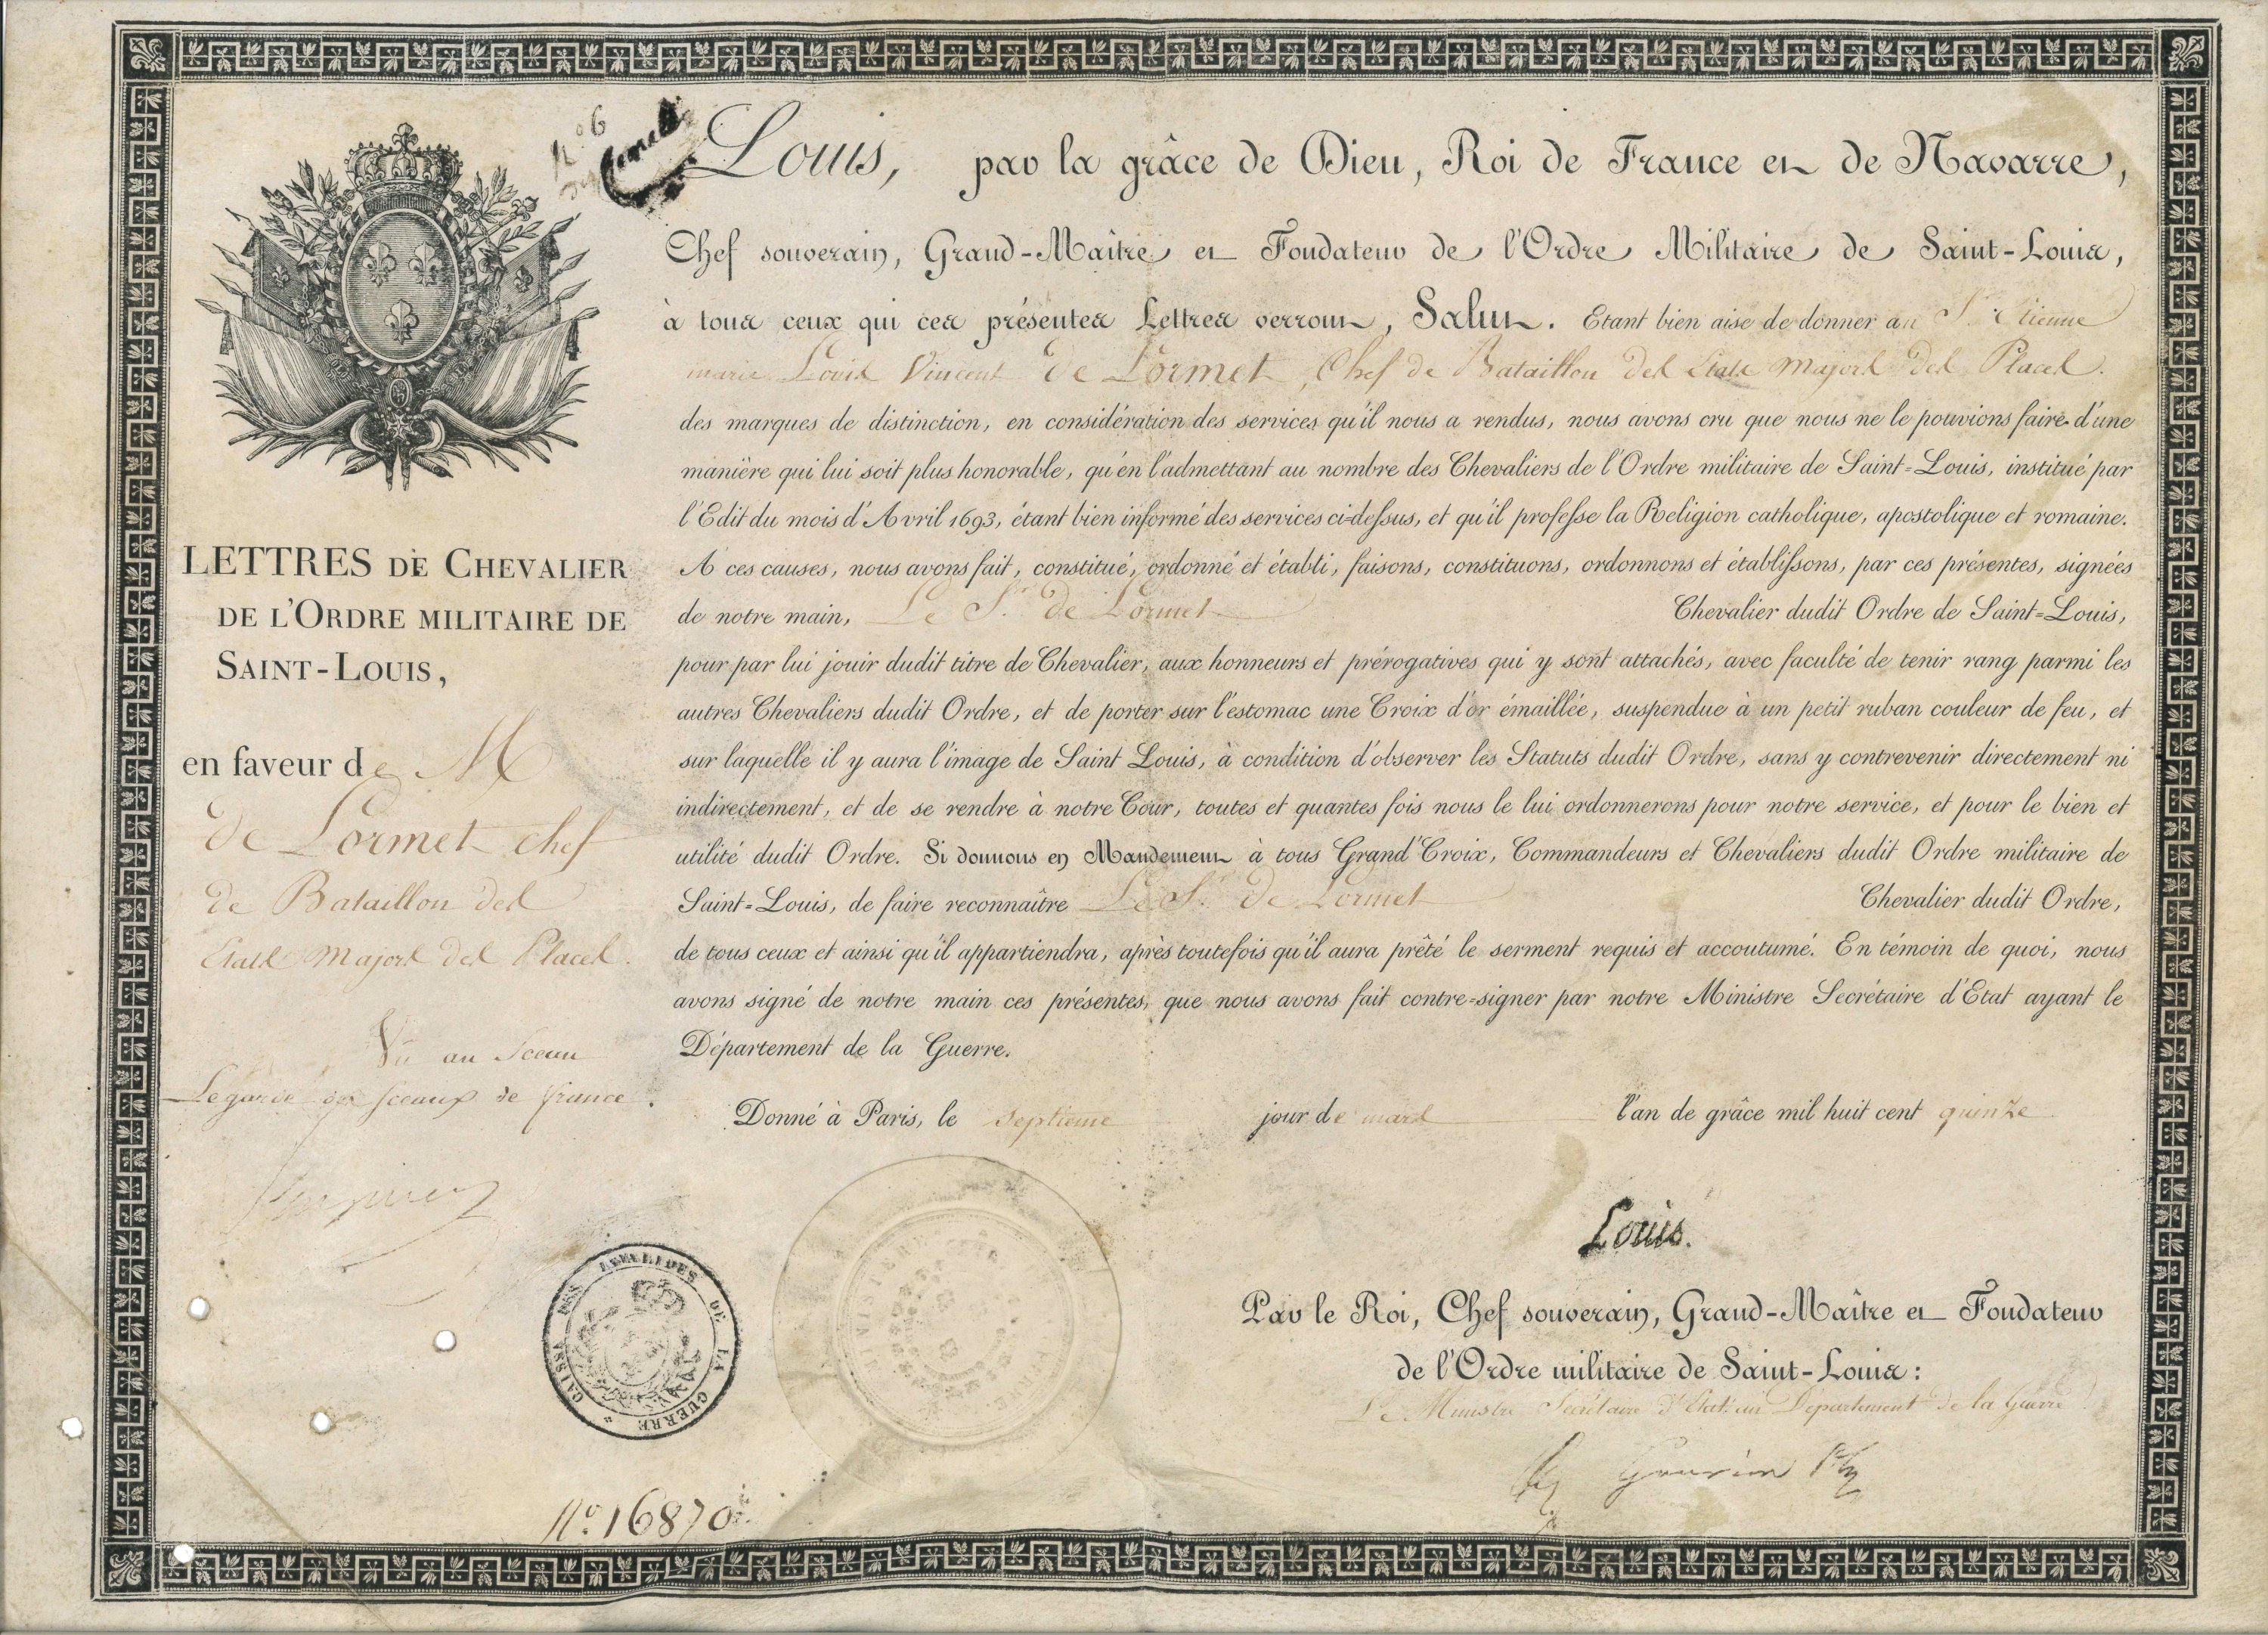 Louis, par la grâce de Dieu, Roi de France et de Navarre,
Chef souverain, Grand-Maître et Fondateur de l'Ordre Militaire de Saint-Louis,
à tous ceux qui ces présentes Lettres verront, Salut. Etant bien aise de donner au S.r Etienne
marie Louis Vincent De Lormet, Chef de Bataillon des Etats Majors des Places.
des marques de distinction, en considération des services qu'il nous a rendus, nous avons cru que nous ne le pouvions faire d'une
manière qui lui soit plus honorable, qu'en l'admettant au nombre des Chevaliers de l'Ordre militaire de Saint=Louis, institué par
l'Edit du mois d'Avril 1693, étant bien informé des services ci=dessus, et qu'il professe la Religion catholique, apostolique et romaine.
A ces causes, nous avons fait, constitué, ordonné et établi, faisons, constituons, ordonnons et établissons, par ces présentes, signées
de notre main, Le S.r De Lormet Chevalier dudit Ordre de Saint=Louis,
pour par lui jouir dudit titre de Chevalier, aux honneurs et prérogatives qui y sont attachés, avec faculté de tenir rang parmi les
autres Chevaliers dudit Ordre, et de porter sur l'estomac une Croix d'or émaillée, suspendue à un petit ruban couleur de feu, et
sur laquelle il y aura l'image de Saint Louis, à condition d'observer les Statuts dudit Ordre, sans y contrevenir directement ni
indirectement, et de se rendre à notre Cour, toutes et quantes fois nous le lui ordonnerons pour notre service, et pour le bien et
utilité dudit Ordre. Si donnons en Mandement à tous Grand'Croix, Commandeurs et Chevaliers dudit Ordre militaire de
Saint=Louis, de faire reconnaître Le S.r De Lormet Chevalier dudit Ordre,
de tous ceux et ainsi qu'il appartiendra, après toutefois qu'il aura prêté le serment requis et accoutumé. En témoin de quoi, nous
avons signé de notre main ces présentes, que nous avons fait contre=signer par notre Ministre Secrétaire d'Etat ayant le
Département de la Guerre.
Donné à Paris, le Septieme jour de mars l'an de grâce mil huit cent quinze
Louis.
Par le Roi, Chef souverain, Grand-Maître et Fondateur
de l'Ordre militaire de Saint-Louis:
Le Ministre Secrétaire d'Etat au Département de la Guerre
LETTRES DE CHEVALIER
DE L'ORDRE MILITAIRE DE
SAINT-LOUIS,
en faveur de M
De Lormet chef
de Bataillon des
Etats Majors des Places.
Vu au Sceau
Le garde des sceaux de france.
CAISSE DES INVALIDES DE LA GUERRE
N.o 16870